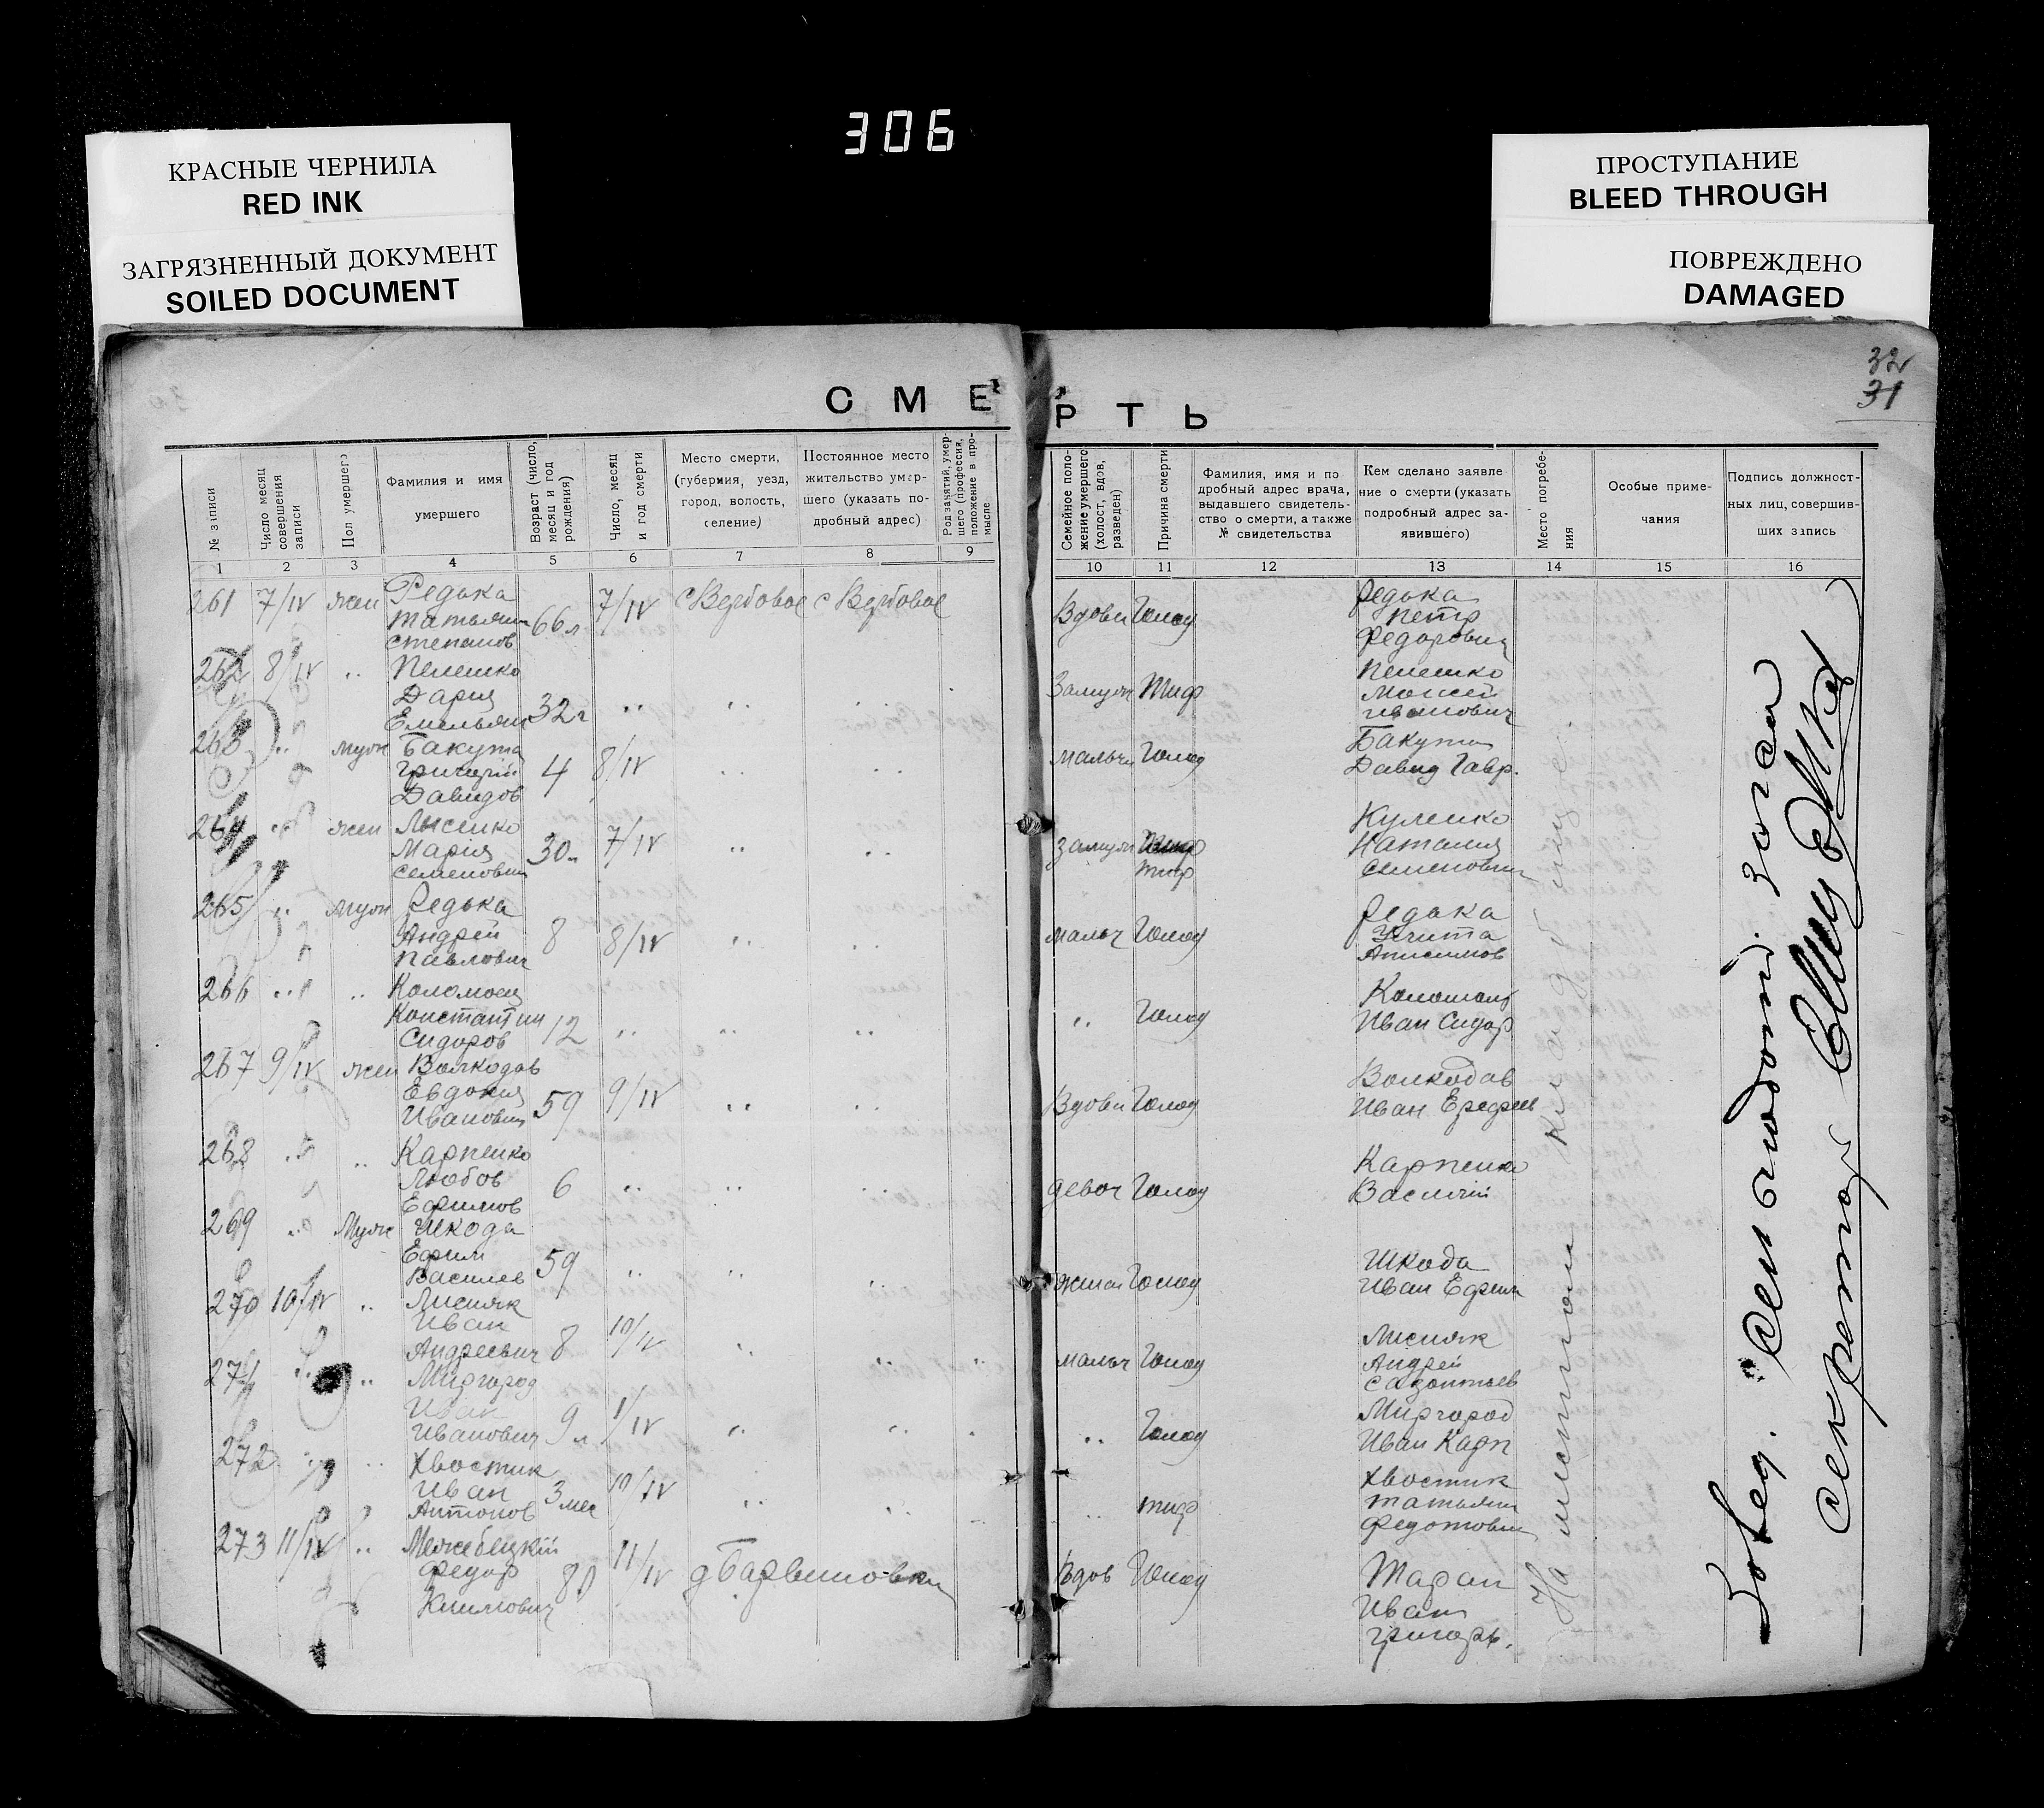 306
КРАСНЫЕ ЧЕРНИЛА
RED INK
ЗАГРЯЗНЕННЫЙ ДОКУМЕНТ
SOILED DOCUMENT
ПРОСТУПАНИЕ
BLEED THROUGH
ПОВРЕЖДЕНО
DAMAGED
32
31
СМЕРТЬ
№ записи
Число месяц совершения записи
Пол умершего
Фамилия и имя умершего
Возраст (число, месяц и год рождения)
Число, месяц и год смерти
Место смерти, (губерния, уезд, город, волость, селение)
Постоянное место жительство умершего (указать подробный адрес)
Род занятий, умершего (профессия, положение в промысле
Семейное положение умершего (холост, вдов, разведен)
Причина смерти
Фамилия, имя и подробный адрес врача, выдавшего свидетельство о смерти, а также № свидетельства
Кем сделано заявление о смерти (указать подробный адрес заявившего)
Место погребения
Особые примечания
Подпись должностных лиц, совершивших запись
1 2 3 4 5 6 7 8 9 10 11 12 13 14 15 16
261 7/IV жен Редька Татьяна Степанов 66л 7/IV с Вербовое с Вербовое Вдова Голод Редька Петр Федорович
262 8/IV " Пелешко Дария Емельян 32г " " " Замуж Тиф Пелешко Моисей Иванович
263 " муж Бакута Григорій Давидов 4 8/IV " " мальч Голод Бакута Давид Гавр.
264 " жен Лысенко Мария Семеновна 30 " 7/IV " " замуж тиф Куленко Наталия Семеновна
265 " муж Редька Андрей Павлович 8 8/IV " " мальч Голод Редька Анисимов
266 " " Коломоец Константин Сидоров 12 " " " " Голод Иван Сидор
267 9/IV жен Волкодав Евдокия Ивановна 59 9/IV " " Вдова Голод Волкодав Иван
268 " " Карпенко Любов Ефимов 6 " " " девоч Голод Карпенко Василий
269 " Муж Шкода Ефим Василев 59 " " " Голод Шкода Иван Ефим
270 10/IV " Лисняк Иван Андреевич 8 10/IV " " " мальч Голод Лисняк Андрей
271 " " Миргород Иван Иванович 9 л " " " " Голод Миргород Иван Карп
272 " " Хвостик Иван Антонов 3 мес 10/IV " " " тиф Хвостик Татьяна Федотовна
273 11/IV " Федор Климович 80 11/IV Вдов Голод Таран Иван Григорь.
На местном кладбище.
Завед.
Секретарь